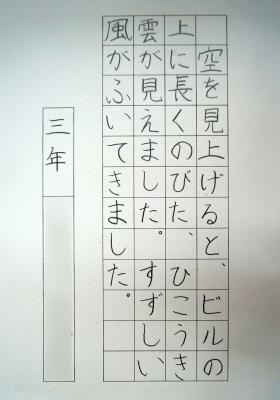 空を見上げると、ビルの
上に長くのびた、ひこうき
雲が見えました。すずしい
風がふいてきました。
三年